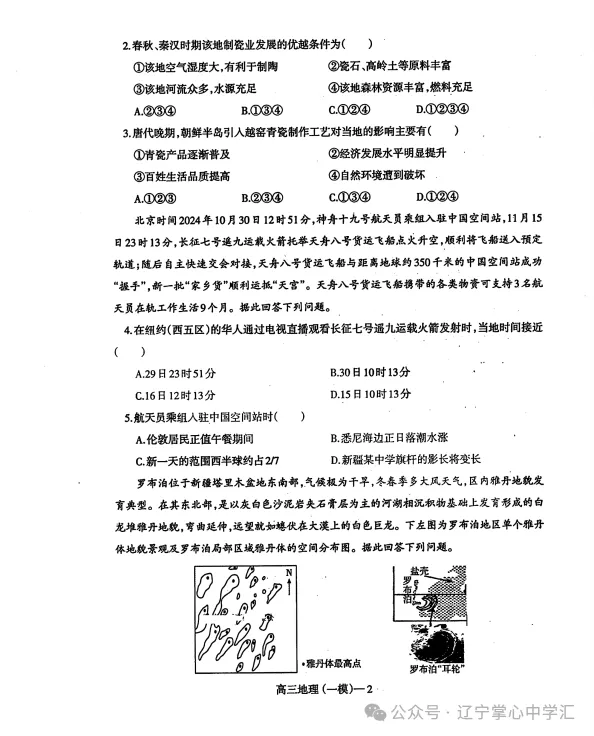 2.春秋、秦汉时期该地制瓷业发展的优越条件为(　　)
①该地空气湿度大,有利于制陶　②瓷石、高岭土等原料丰富
③该地河流众多,水源充足　④该地森林资源丰富,燃料充足
A.②③④　B.①③④　C.①②④　D.①②③④
3.唐代晚期,朝鲜半岛引入越窑青瓷制作工艺对当地的影响主要有(　　)
①青瓷产品逐渐普及　②经济发展水平明显提升
③百姓生活品质提高　④自然环境遭到破坏
A.①②③　B.②③④　C.①③④　D.①②④
北京时间2024年10月30日12时51分,神舟十九号航天员乘组入驻中国空间站,11月15
日23时13分,长征七号遥九运载火箭托举天舟八号货运飞船点火升空,顺利将飞船送入预定
轨道;随后自主快速交会对接,天舟八号货运飞船与距离地球约350千米的中国空间站成功
“握手”,新一批“家乡货”顺利运抵“天宫”。天舟八号货运飞船携带的各类物资可支持3名航
天员在轨工作生活9个月。据此回答下列问题。
4.在纽约(西五区)的华人通过电视直播观看长征七号遥九运载火箭发射时,当地时间接近
(　　)
A.29日23时51分　B.30日10时13分
C.16日12时13分　D.15日10时13分
5.航天员乘组入驻中国空间站时(　　)
A.伦敦居民正值午餐期间　B.悉尼海边正日落潮水涨
C.新一天的范围西半球约占2/7　D.新疆某中学旗杆的影长将变长
罗布泊位于新疆塔里木盆地东南部,气候极为干旱,冬春季多大风天气,区内雅丹地貌发
育典型。在其东北部,是以灰白色沙泥岩夹石膏层为主的河湖相沉积物基础上发育形成的白
龙堆雅丹地貌,弯曲延伸,远望就如蜷伏在大漠上的白色巨龙。下左图为罗布泊地区单个雅丹
体地貌景观及罗布泊局部区域雅丹体的空间分布图。据此回答下列问题。
N
•雅丹体最高点
盐壳
罗布泊
罗布泊“耳轮”
高三地理(一模)—2
公众号 · 辽宁掌心中学汇